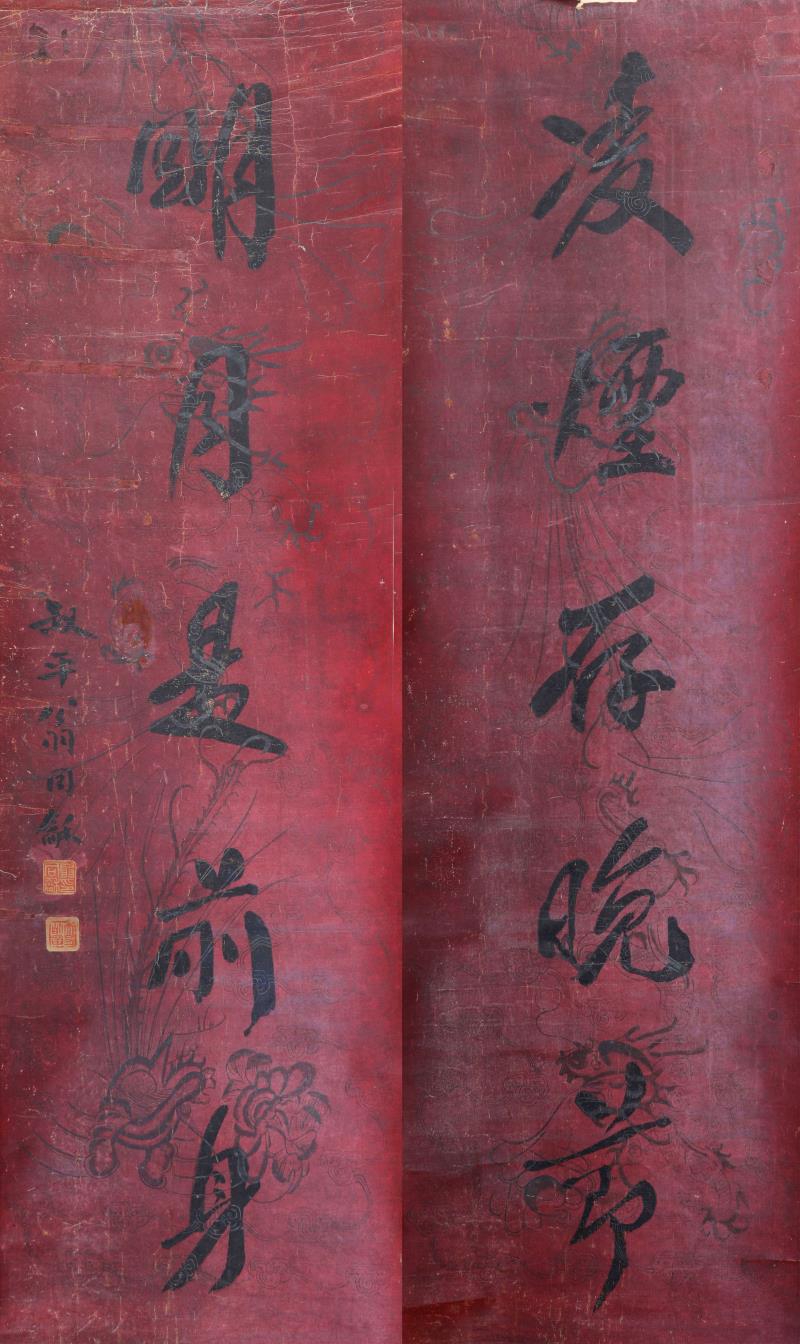 凌煙存晚節
明月是前身
叔平翁同龢